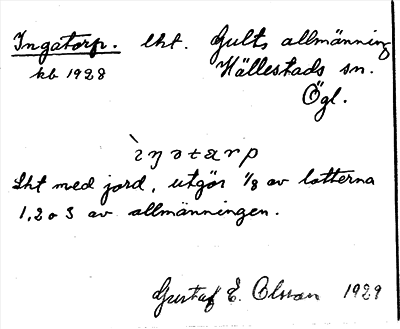 Ingatorp. lht. Gults allmänning
kb 1928 Hällestads sn.
Ögl.
ìŋɘtɑrp
Lht med jord, utgör 1/8 av lotterna
1, 2 o 3 av allmänningen.
Gustaf E. Olsson 1929